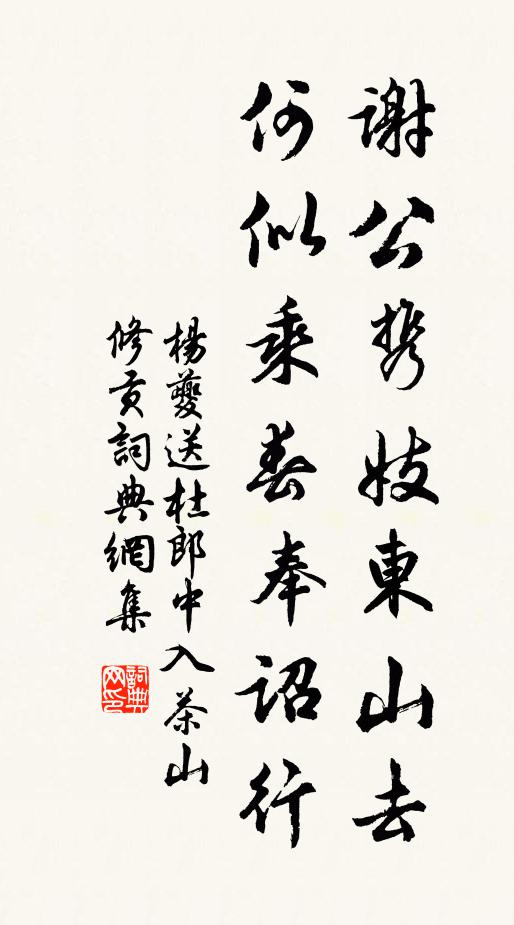 謝公携妓東山去
何似乘春奉詔行
楊夔送杜郎中入茶山
修貢詞典網集
詞典
网印